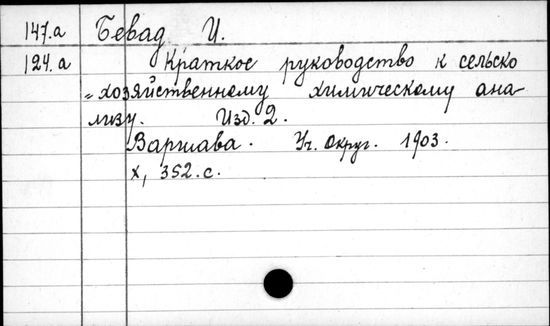 147.а Бевад И.
124.а Краткое руководство к сельско
-хозяйственному химическому ана-
лизу. Изд. 2.
Варшава. Уч. Округ. 1903.
X, 352.с.